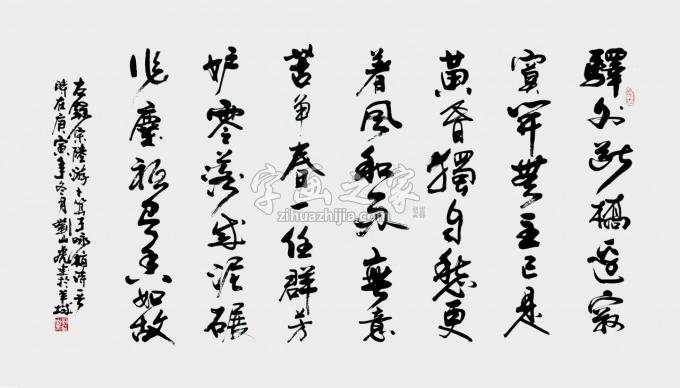 驛外斷橋邊寂
寞開無主已是
黃昏獨自愁更
着風和雨無意
苦争春一任群芳
妒零落成泥碾
作塵祗有香如故
右錄宋陸游卜算子咏梅詩一首
時在庚寅年冬月劉山虎書於羊城
字画之家
zihuazhijia.com